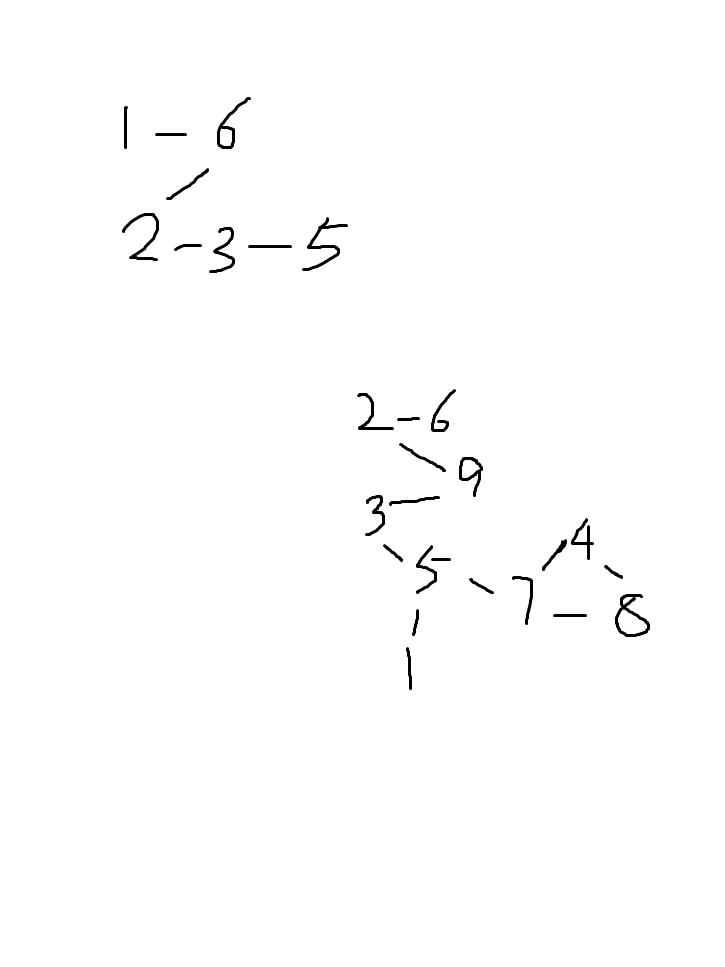 1 - 6
2 - 3 - 5
2 - 6
9
3
4
5
7 - 8
1